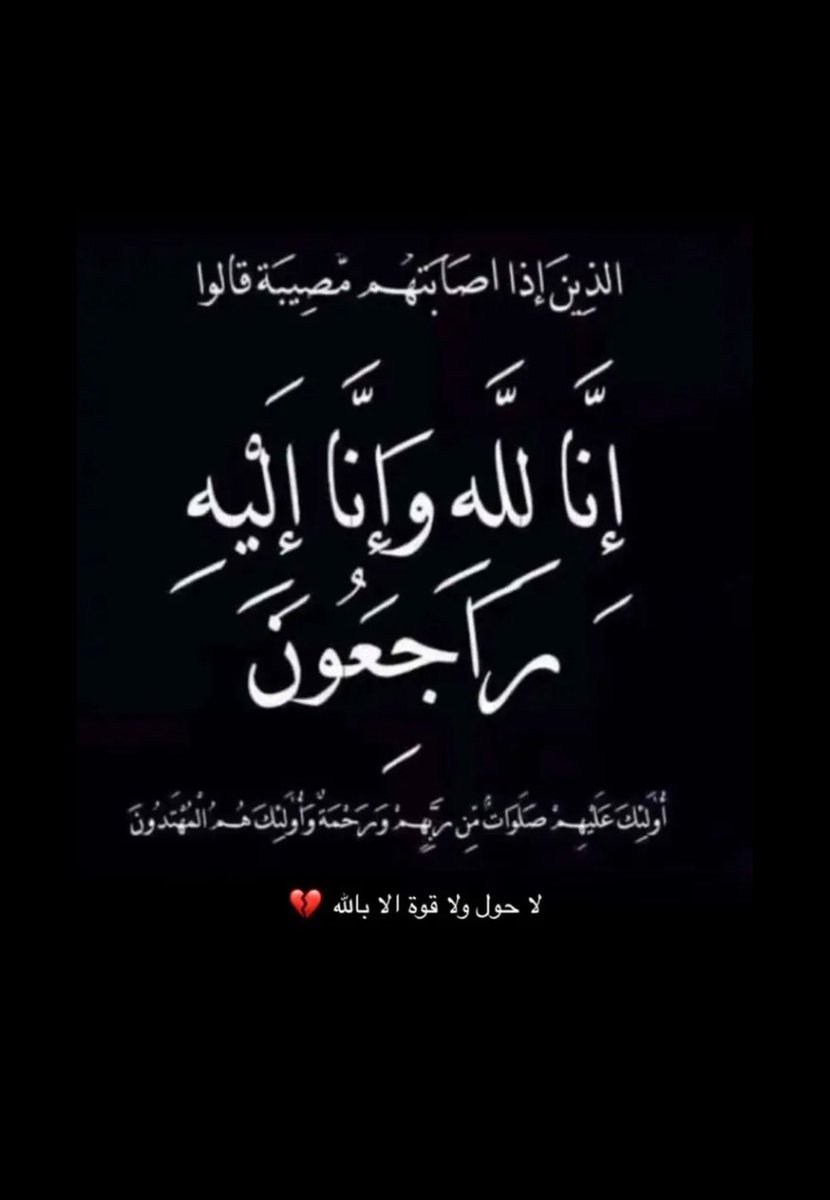 الذِينَ إِذا اصَابَتهُم مُّصِيبَة قالوا
إِنَّا للَّه وَإِنَّا إِلَيْهِ
رَاجِعُونَ
أُولَئِكَ عَلَيْهِمْ صَلَوَاتٌ مِّن رَّبِّهِمْ وَرَحْمَةٌ وَأُولَئِكَ هُمُ الْمُهْتَدُونَ
لا حول ولا قوة الا بالله 💔